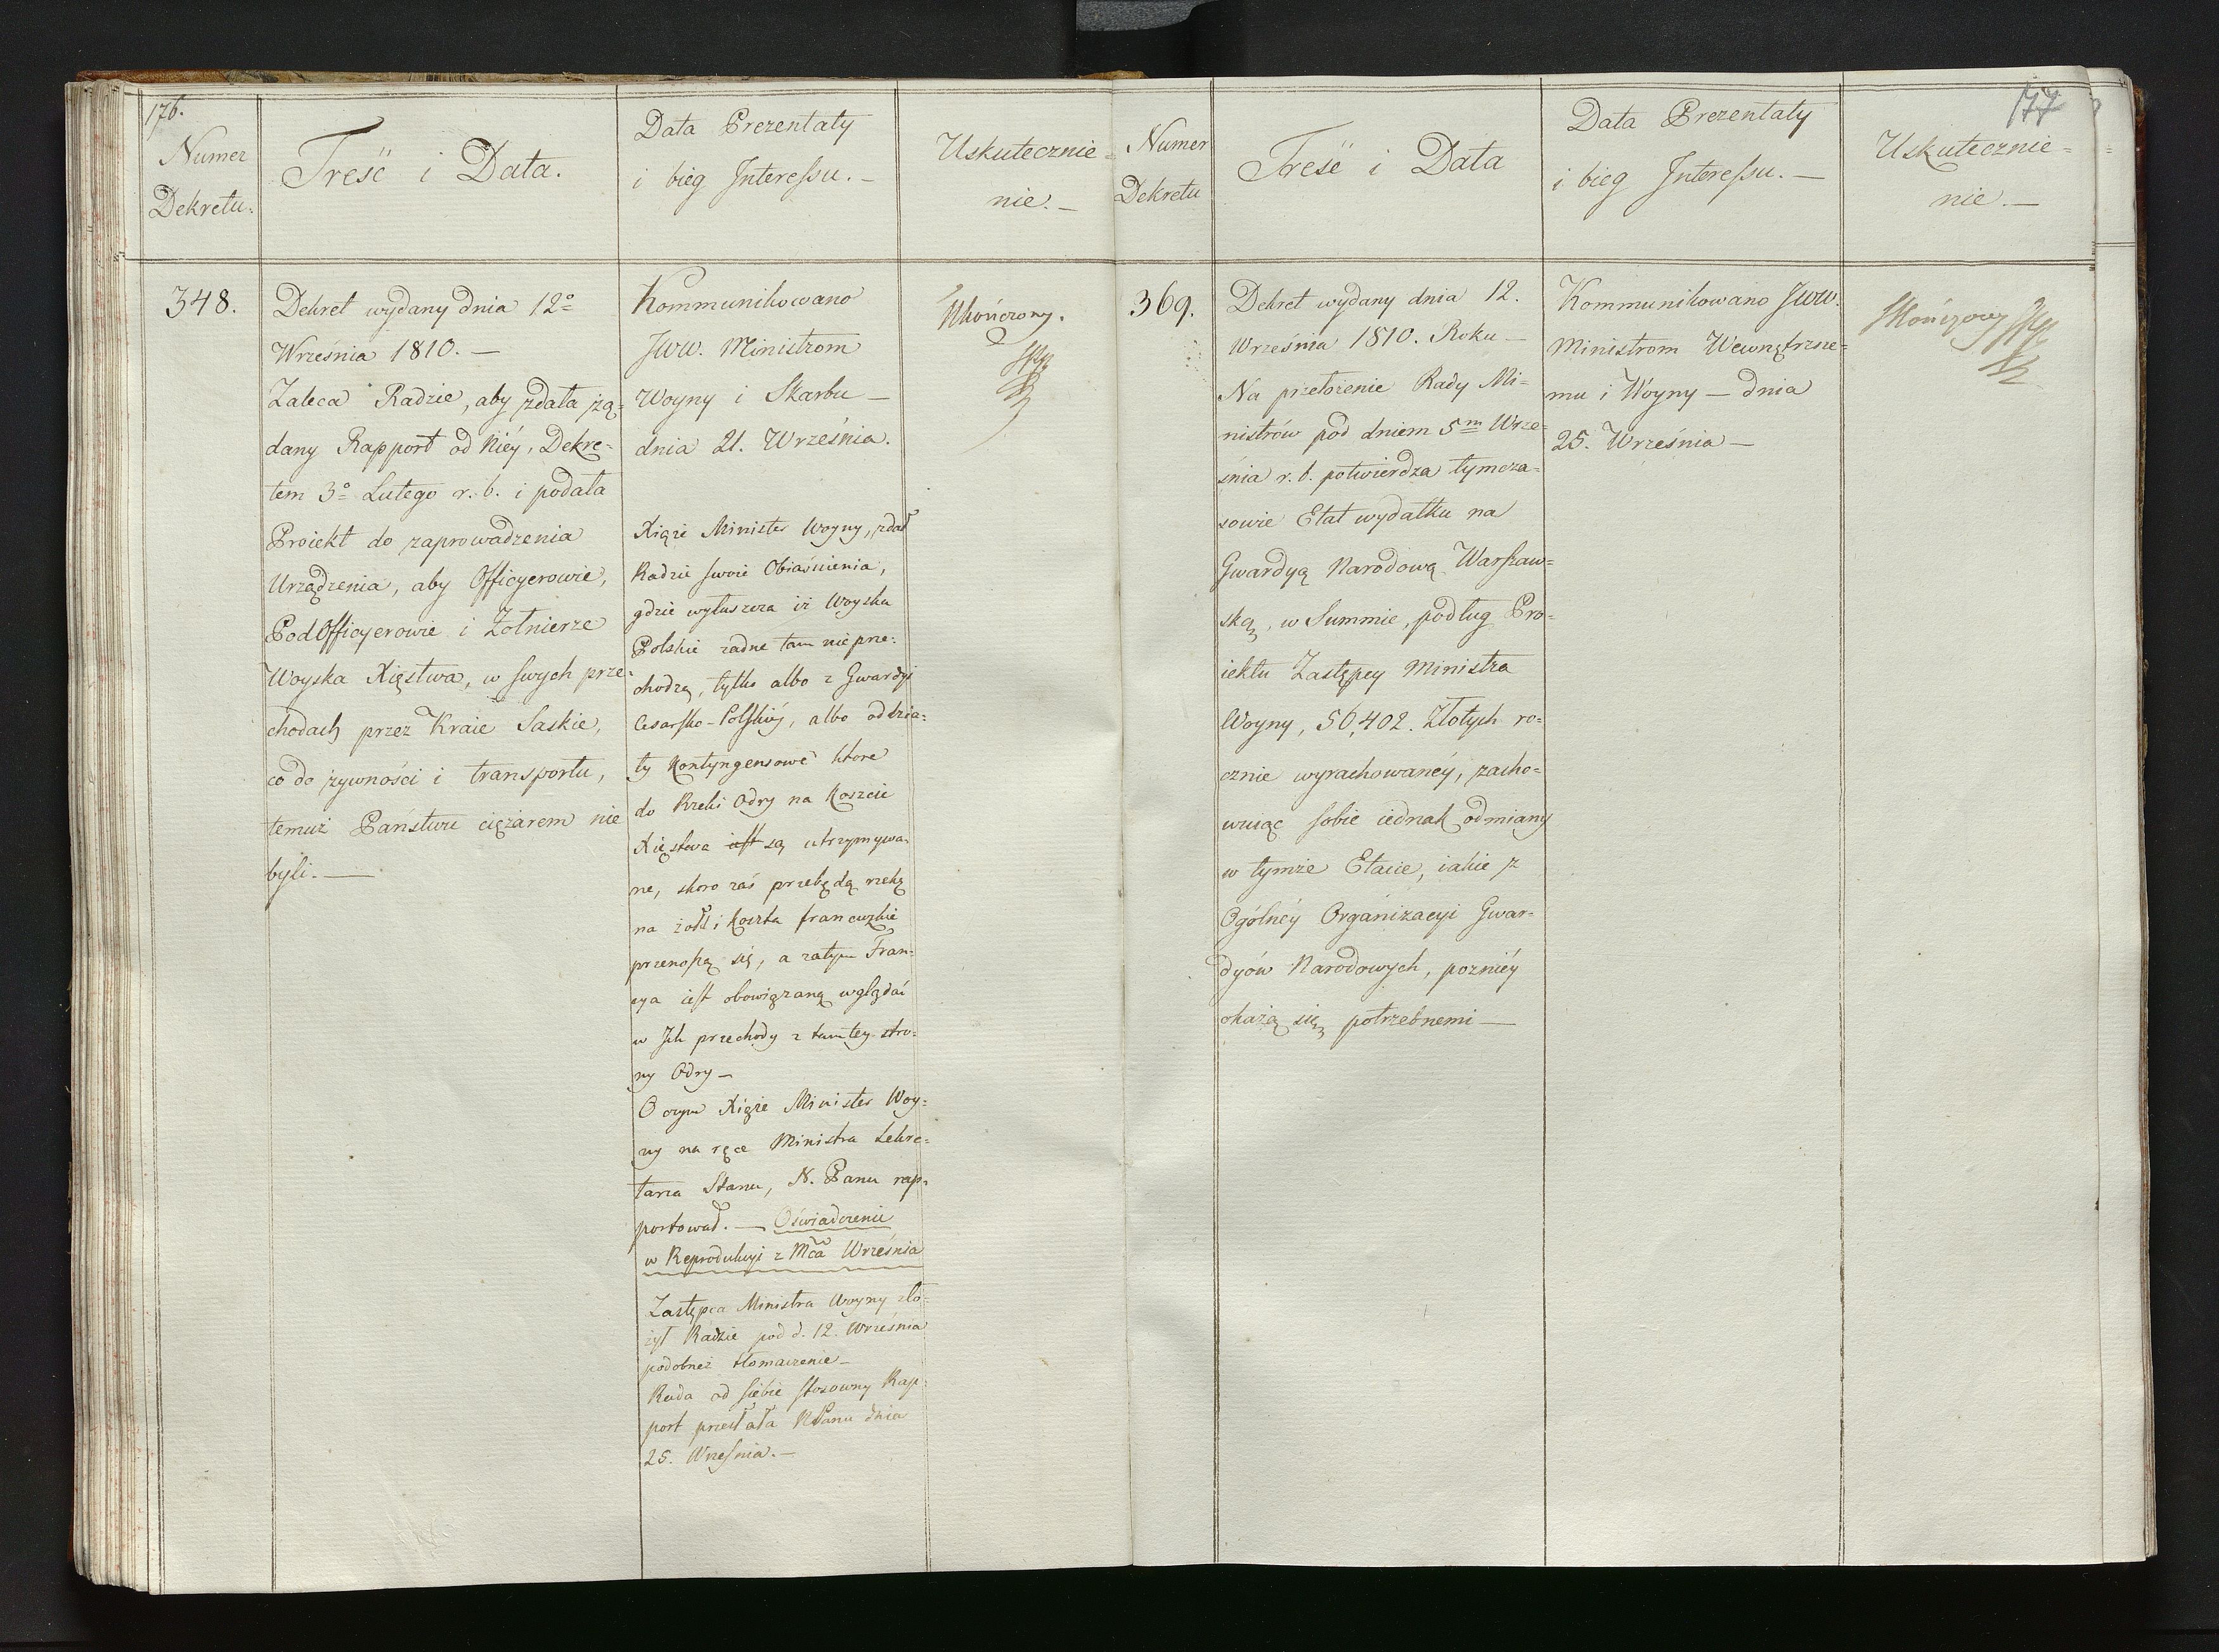 176.
Numer
Dekretu.
Treść i Data.
Data Prezentaty
i bieg Interessu. —
Uskutecznie=
nie. —
348.
Dekret wydany dnia 12º
Września 1810. —
Zaleca Radzie, aby zdała żą=
dany Rapport od Niéy, Dekre=
tem 3º Lutego r. b. i podała
Proiekt do zaprowadzenia
Urządzenia, aby Officyerowie,
PodOfficyerowie i Żołnierze
Woyska Xięstwa, w swych prze=
chodach przez Kraie Saskie,
co do żywności i transportu,
temuż Państwu ciężarem nie
byli. —
Kommunikowano
JWW. Ministrom
Woyny i Skarbu —
dnia 21. Września.
Xiąże Minister Woyny, zdał
Radzie swoie Obiaśnienia,
gdzie wyłuszcza iż Woyska
Polskie żadne tam nie prze=
chodzą, tylko albo z Gwardyi
Cesarsko-Polskiéy, albo oddzia=
ły Kontyngensowe które
do Rzeki Odry na Koszcie
Xięstwa iest są utrzymywa=
ne, skoro zaś przebędą rzekę
na żołd i koszta francuzkie
przenoszą się, a zatym Fran=
cya iest obowiązaną wglądać
w Ich przechody z tamtey stro=
ny Odry —
O czym Xiąże Minister Woy=
ny na ręce Ministra Sekre=
tarza Stanu, N. Panu rap=
portował. — Oświadczenie
w Reprodukcyi z Mca Września
Zastępca Ministra Woyny zło=
żył Radzie pod d. 12. Września
podobneż tłomaczenie —
Rada od siebie stosowny Rap=
port przesłała NPanu dnia
25. Września. —
Ukończony.
177
Numer
Dekretu
Treść i Data
Data Prezentaty
i bieg Interessu. —
Uskutecznie=
nie. —
369.
Dekret wydany dnia 12.
Września 1810. Roku —
Na przełożenie Rady Mi=
nistrów pod dniem 5m Wrze=
śnia r. b. potwierdza tymcza=
sowie Etat wydatku na
Gwardyą Narodową Warszaw=
ską, w Summie, podług Pro=
iektu Zastępcy Ministra
Woyny, 50,402. Złotych ro=
cznie wyrachowanéy, zacho=
wuiąc sobie iednak odmiany
w tymże Etacie, iakie z
Ogólnéy Organizacyi Gwar=
dyów Narodowych, pozniéy
okażą się potrzebnemi —
Kommunikowano JWW.
Ministrom Wewnętrzne=
mu i Woyny — dnia
25. Września —
Skończony